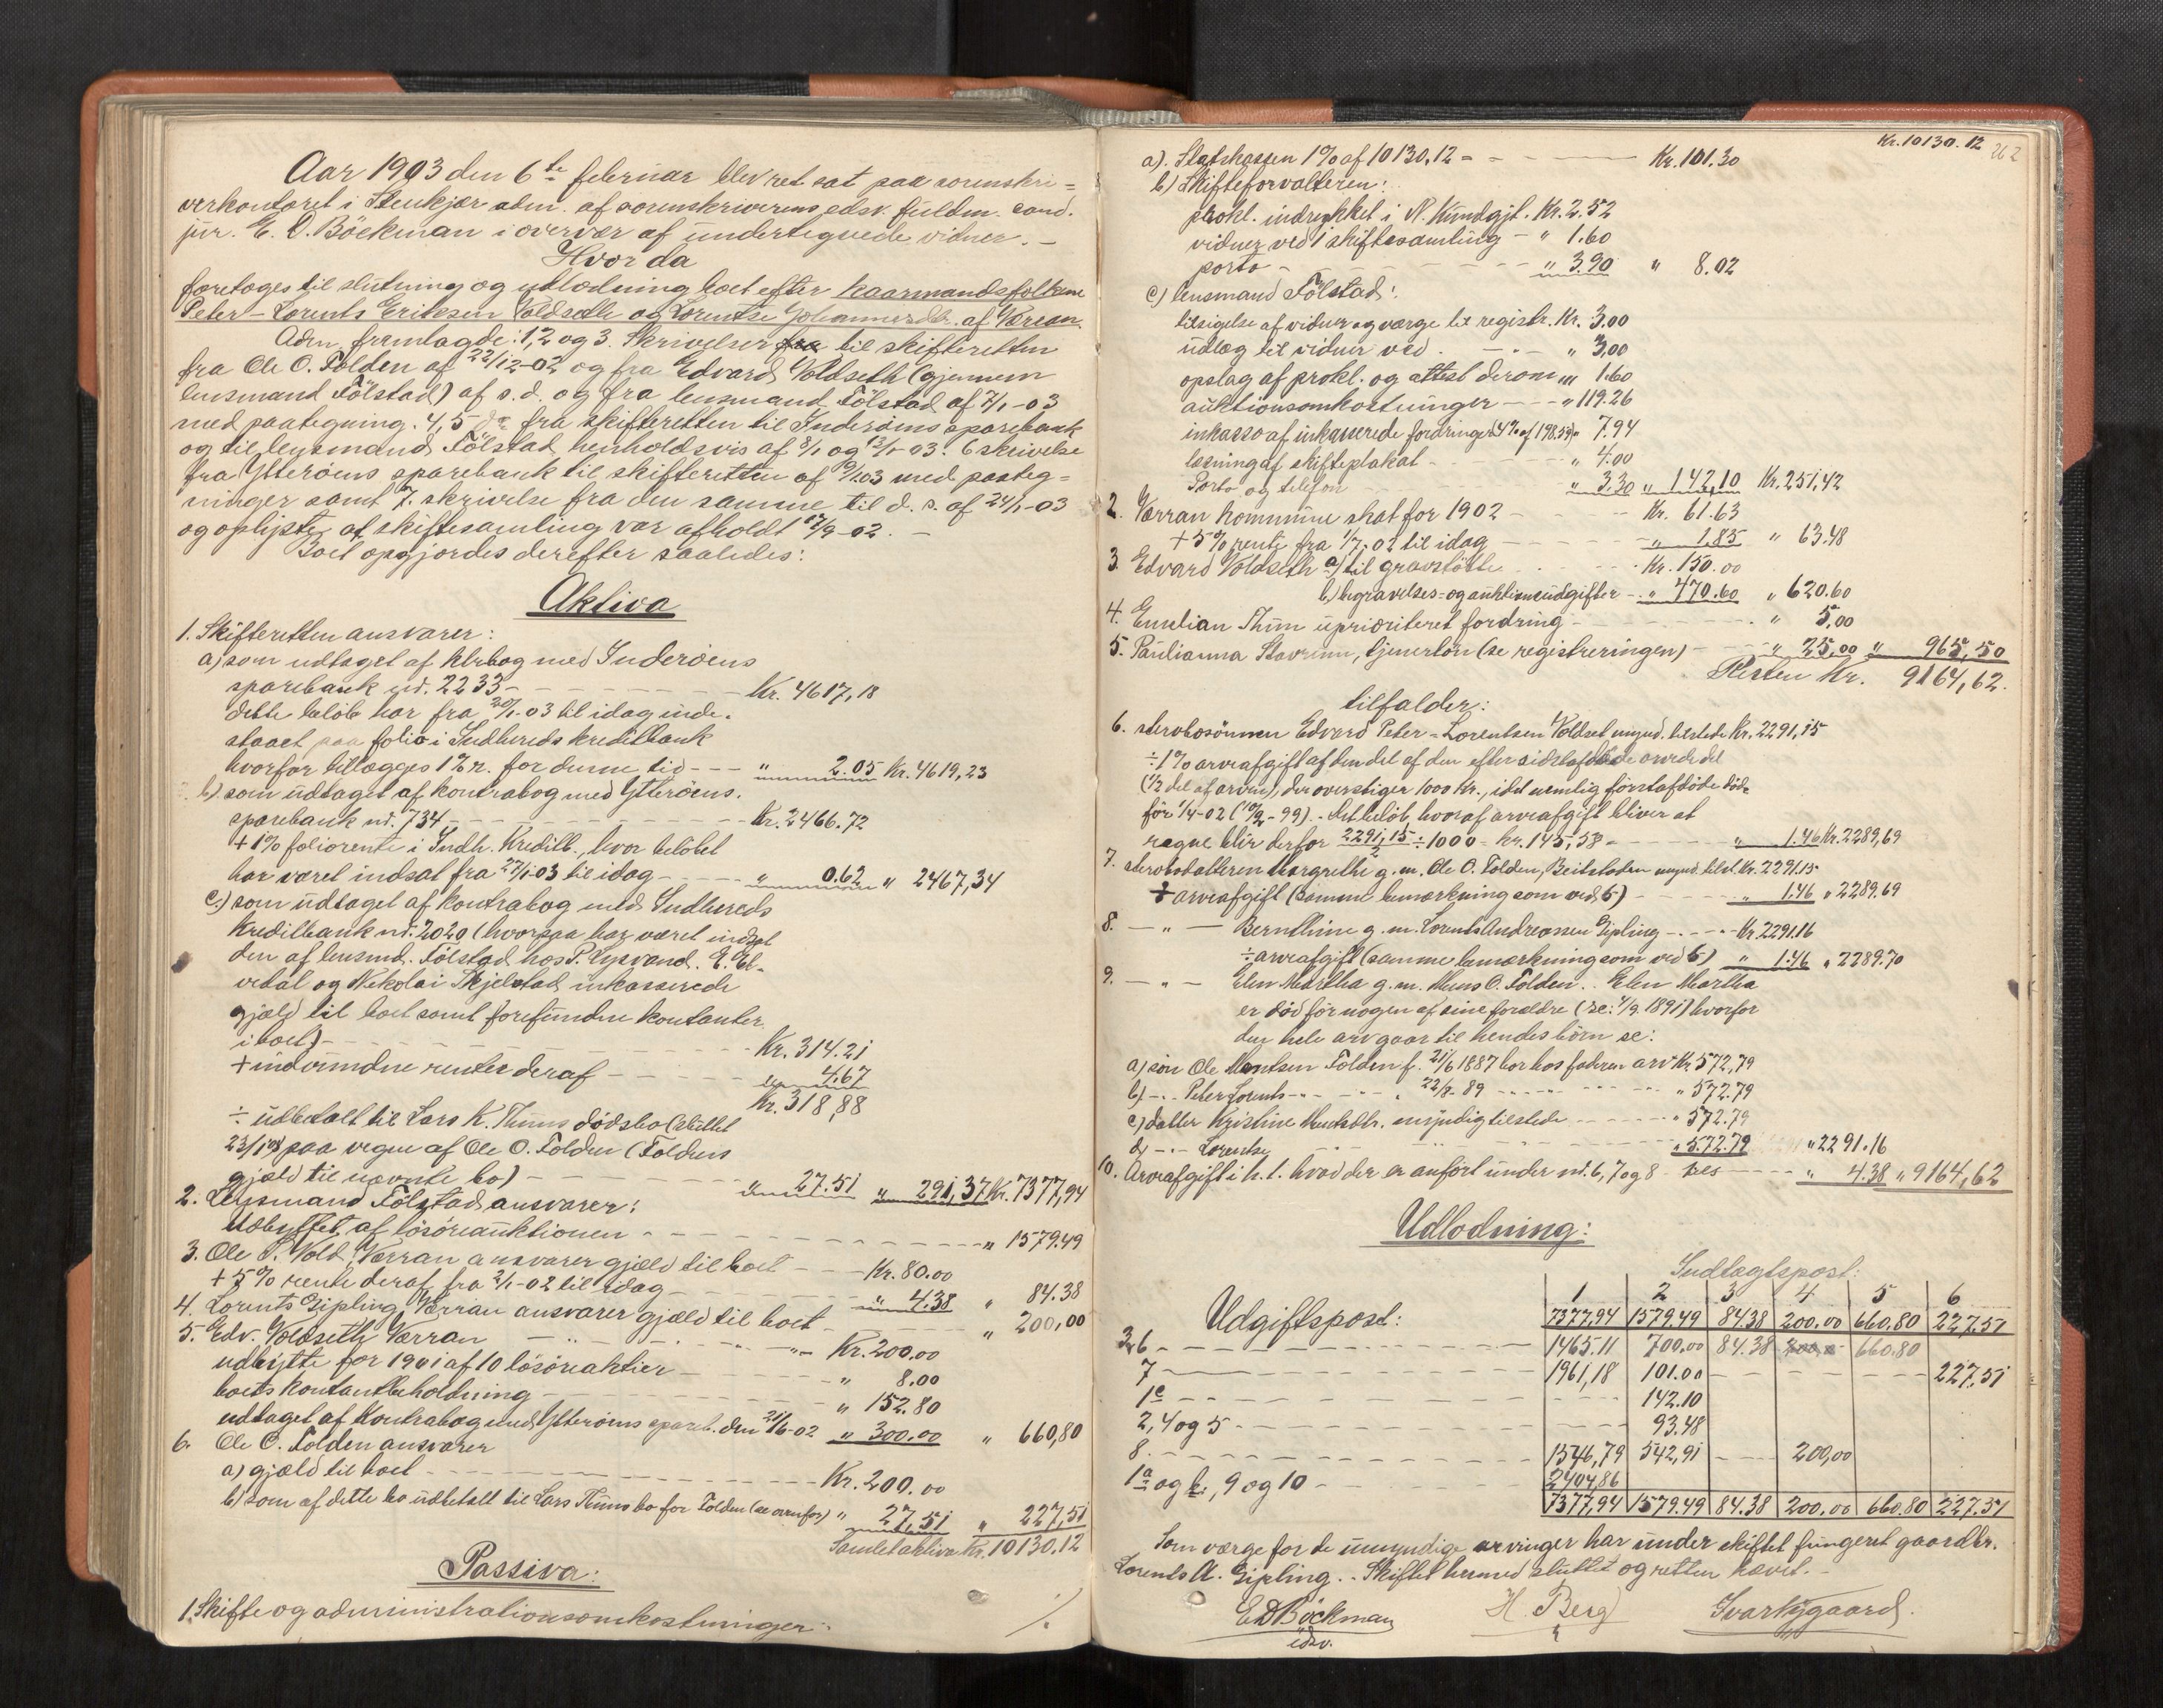 Aar 1903 den 6te februar blev ret sat paa sorenskri-
verkontoret i Stenkjær adm. af sorenskriverens edsv. fuldm. cand.
jur. E. D. Böckman i overvær af undertegnede vidner. -
Hvor da
foretoges til slutning og udlodning boet efter kaarmandsfolkene
Peter-Lorents Eriksen Voldseth og Lorentse Johannesdtr. af Værran.
Adm. fremlagde: 1, 2 og 3. Skrivelser fra til skifteretten
fra Ole O. Folden af 22/12-02 og fra Edvard Voldseth (gjennem
lensmand Fölstad) af s.d. og fra lensmand Fölstad af 7/1-03
med paategning. 4, 5 fra skifteretten til Inderöens sparebank
og til lensmand Fölstad henholdsvis af 8/1 og 12/1-03. 6 skrivelse
fra Ytteröens sparebank til skifteretten af 9/1 03 med paateg-
ninger samt 7. skrivelse fra den samme til d. s. af 24/1-03
og oplyste, at skiftesamling var afholdt 17/9-02. -
Boet opgjordes derefter saaledes:
Aktiva
1. Skifteretten ansvarer:
a) som udtaget af ktrbog med Inderöens
sparebank nr. 2233 - Kr. 4617,18
dette belöb har fra 20/1-03 til idag inde-
staaet paa folio i Indhereds kreditbank
hvorfor tillægges 1% r. for denne tid - - - " 2.05 Kr. 4619,23
b) som udtaget af kontrabog med Ytteröens
sparebank nr. 734 - Kr. 2466.72
+ 1% foliorente i Indh. Kreditb., hvor belöbet
har været indsat fra 27/1-03 til idag - " 0.62 " 2467,34
c) som udtaget af kontrabog med Indhereds
Kreditbank nr. 2020 (hvorpaa har været indsat
den af lensmd. Fölstad hos P. Lysvand. E. El-
vedal og Nikolai Skjelstad inkasserede
gjæld til boet samt forefundne kontanter
i boet) - Kr. 314.21
+ indvundne renter deraf - - - 4.67
Kr. 318,88
÷ udbetalt til Lars K. Thuns dödsbo (sluttet
23/1 03) paa vegne af Ole O. Folden (Foldens
gjæld til nævnte bo) - " 27.51 " 291,37 Kr. 7377,94
2. Lensmand Fölstad ansvarer:
Udbyttet af lösöreauktionen - " 1579.49
3. Ole P. Vold, Værran ansvarer gjæld til boet - - Kr. 80.00
+ 5% rente deraf fra 2/1-02 til idag - " 4.38 " 84.38
4. Lorents Gipling, Værran ansvarer gjæld til boet - " 200,00
5. Edv. Voldseth Værran - " - " - Kr. 200.00
udbytte for 1901 af 10 lösöreaktier - " 8.00
boets kontantbeholdning - " 152.80
udtaget af Kontrabog med Ytteröens spareb. den 21/6-02 " 300.00 " 660,80
6. Ole O. Folden ansvarer
a) gjæld til boet - Kr. 200.00
b) som af dette bo udbetalt til Lars Thuns bo for Folden (se ovenfor) " 27,51 " 227,51
Samlet aktiva Kr. 10130.12
Passiva:
1. Skifte og administrationsomkostninger:
./.
Kr. 10130.12
262
a). Statskassen 1% af 10130,12 = - - - Kr. 101.30
b) Skifteforvalteren:
prokl. indrykket i N. Kundgjt. Kr. 2.52
vidner ved 1 skiftesamling - " 1.60
porto - " 3.90 " 8.02
c) lensmand Fölstad:
tilsigelse af vidner og værge til registr. Kr. 3.00
udlæg til vidner ved - " - " 3,00
opslag af prokl. og attest derom " 1.60
auktionsomkostninger - - - " 119.26
inkasso af inkasserede fordringer (4% af 198.59) " 7.94
læsning af skifteplakat - " 4.00
Porto og telefon " 3.30 " 142,10 Kr. 251,42
2. Værran kommune skat for 1902 - - Kr. 61.63
+ 5% rente fra 1/7-02 til idag - " 1,85 " 63.48
3. Edvard Voldseth a) til gravstötte - Kr. 150.00
b) begravelses- og auktionsudgifter - " 470.60 " 620.60
4. Emilian Thun uprioriteret fordring - " 5,00
5. Paulianna Stavrum, tjenerlön (se registreringen) - " 25,00 " 965,50
Resten Kr. 9164,62.
tilfalder:
6. sterbosönnen Edvard Peter-Lorentsen Voldset mynd. tilstede Kr. 2291,15
÷ 1% arveafgift af den del af den efter sidstafdöde arvede del
(1/2 del af arven), der overstiger 1000 kr., idet nemlig förstafdöde döde
för 1/4-02 (10/2-99). - Det belöb, hvoraf arveafgift bliver at
regne blir derfor 2291,15/2 ÷ 1000 = kr. 145,58 - " 1.46 Kr. 2289,69
7. sterbodatteren Margrethe g. m. Ole O. Folden, Beitstaden mynd. tilst. Kr. 2291.15
÷ arveafgift (samme bemærkning som ved 6) - " 1.46 " 2289.69
8. - " - Bernthine g. m. Lorents Andreassen Gipling - - - Kr. 2291.16
÷ arveafgift (samme bemærkning som ved 6) " 1.46 " 2289.70
9. - " - Elen Martha g. m. Mons O. Folden. Elen Martha
er död för nogen af sine forældre (se: 4/9 1891) hvorfor
den hele arv gaar til hendes börn se:
a) sön Ole Montsen Folden f. 21/6 1887 bor hos faderen arv Kr. 572,79
b) - " - Peter Lorents - " - " 22/8-89 - " 572.79
c) datter Kristine Montsdtr. umyndig tilstede - " 572.79
d) - " - Lorentse " 572.79 " 2291.16
10. Arveafgift i h. t. hvad der er anfört under nr. 6, 7 og 8 - " 4.38 " 9164,62
Udlodning:
Indtægtspost:
1 2 3 4 5 6
Udgiftspost: 7377,94 1579.49 84.38 200.00 660.80 227.51
3, 6 - 1465.11 700,00 84.38 200,00 660.80
7 - 1961,18 101.00 227,51
1c - 142.10
2, 4 og 5 - 93.48
8 - 1546,79 542,91 200,00
1a og b, 9 og 10 - 2404,86
7377,94 1579.49 84.38 200.00 660.80 227.51
Som værge for de umyndige arvinger har under skiftet fungeret gaardbr.
Lorents A. Gipling. - Skiftet hermed sluttet og retten hævet. -
E D Böckman H. Berg Ivar Nygaard.
edsv.